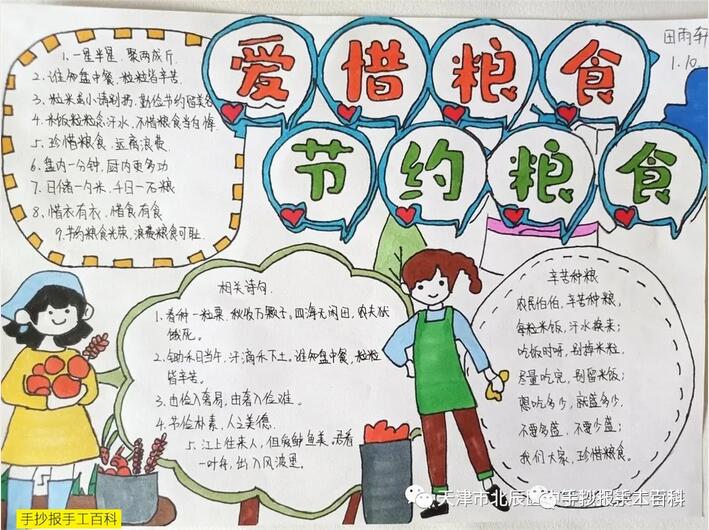 爱惜粮食
节约粮食
田雨轩
1.10.
1. 一星半星, 聚两成斤
2. 谁知盘中餐, 粒粒皆辛苦
3. 粒米虽小请别扔, 勤俭节约留美名
4. 米饭粒粒含汗水, 不惜粮食当自悔
5. 珍惜粮食, 远离浪费
6. 盘内一分钟, 厨内更多功
7. 日储一勺米, 千日一石粮
8. 惜衣有衣, 惜食有食
9. 节约粮食光荣, 浪费粮食可耻
相关诗句.
1. 春种一粒粟, 秋收万颗子。四海无闲田, 农夫犹
饿死。
2. 锄禾日当午, 汗滴禾下土。谁知盘中餐, 粒粒
皆辛苦。
3. 由俭入奢易, 由奢入俭难。
4. 节俭朴素, 人之美德.
5. 江上往来人, 但爱鲈鱼美。君看
一叶舟, 出入风波里。
辛苦种粮
农民伯伯, 辛苦种粮,
每粒米饭, 汗水换来;
吃饭时呀, 别掉米粒.
尽量吃完, 别留米饭;
想吃多少, 就盛多少.
不要多盛, 不要少盛;
我们大家, 珍惜粮食.
手抄报手工百科
天津市北辰区
手抄报手工百科